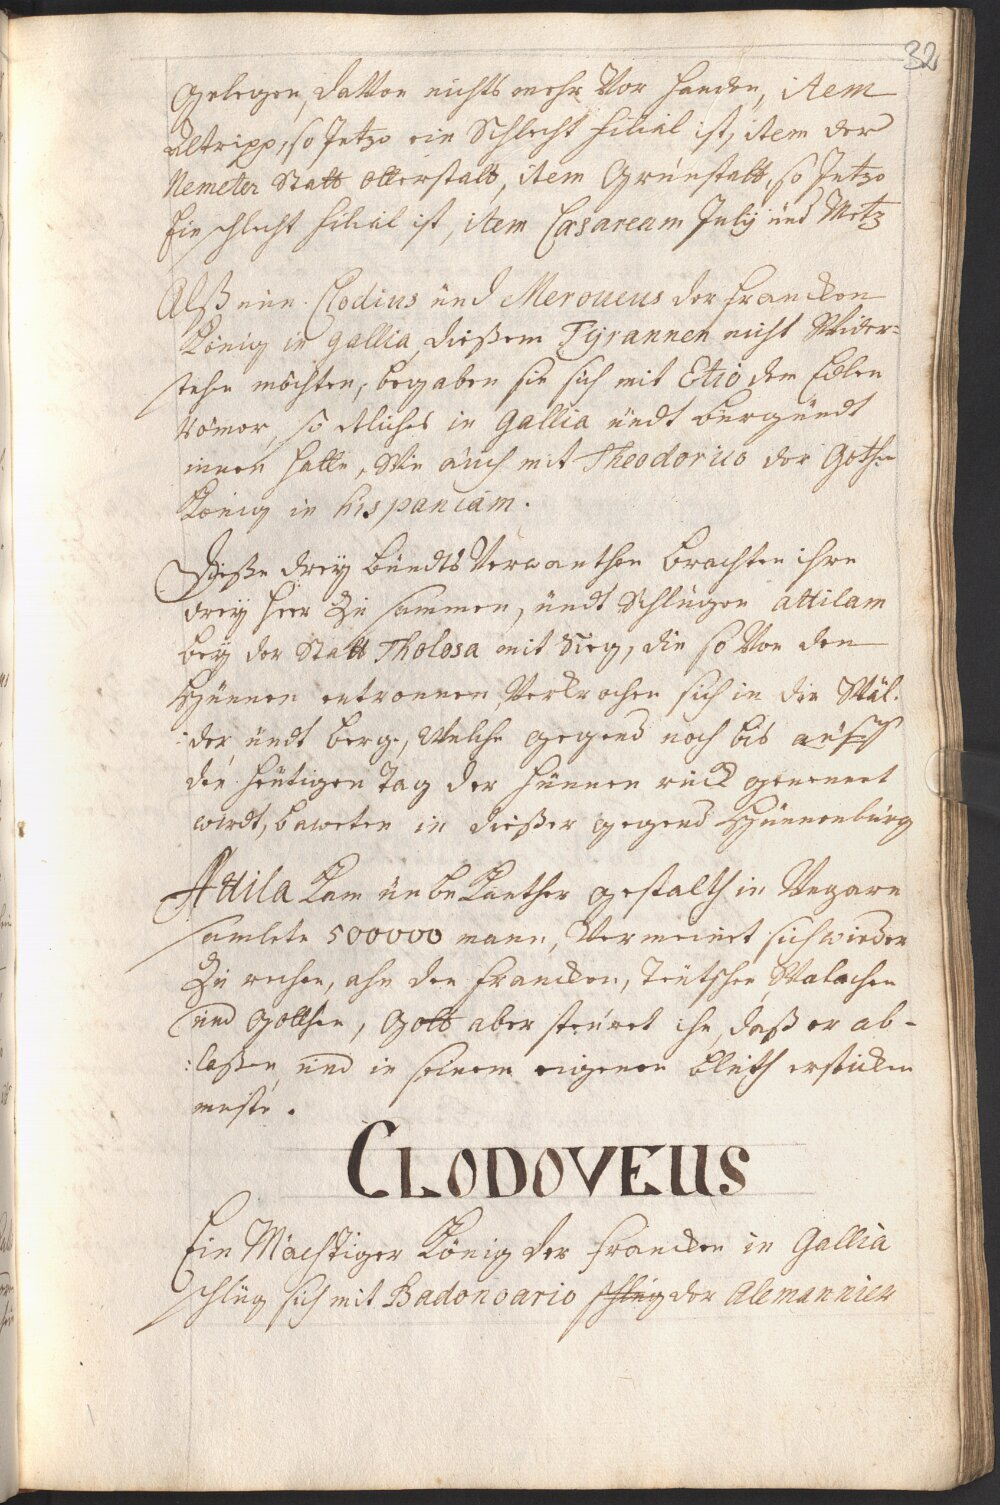 32
gelegen, davon nichts mehr Vor handen, item
Altripp, so Jetzo ein Schlecht filial ist, item der
Nemeter Statt Otterstatt, item Grünstatt, so Jetzo
Ein schlecht filial ist, item Cæsaream Julÿ und Metz
Alß nun Clodius und Meroueus der francken
König in gallia, dießem Tÿrannen nicht Wider-
stehn möchten, begaben sie sich mit Etio dem Edlen
Römer, so etliches in Gallia undt burgundt
innen hatte, Wie auch mit Theodorico der Gothen
König in hispaniam.
Dieße dreÿ bundts Verwanthen brachten ihre
dreÿ heer Zu sammen, undt Schlugen attilam
beÿ der Statt Tholosa mit Sieg, die so Von den
Hunnen entronnen, Verkrochen sich in die Wäl-
:der undt berge, Welche gegend noch bis auff
den heutigen Tag der Hunnen ruck genennet
wirdt, baweten in dießer gegend Hunnenburg
Attila Kam unbekanther gestalth in Ungarn
samlete 500000 mann, Vermeinet sich wieder
Zu rechen, ahn den francken, Teutschen, Walachen
und Gotthen, Gott aber steuret ihn, daß er ab-
:laßen, und in seinem eigenen bluth ersticken
muste.
CLODOVEUS
Ein Mächtiger König der francken in Gallia
schlug sich mit Badonoario schlug der Alemannier